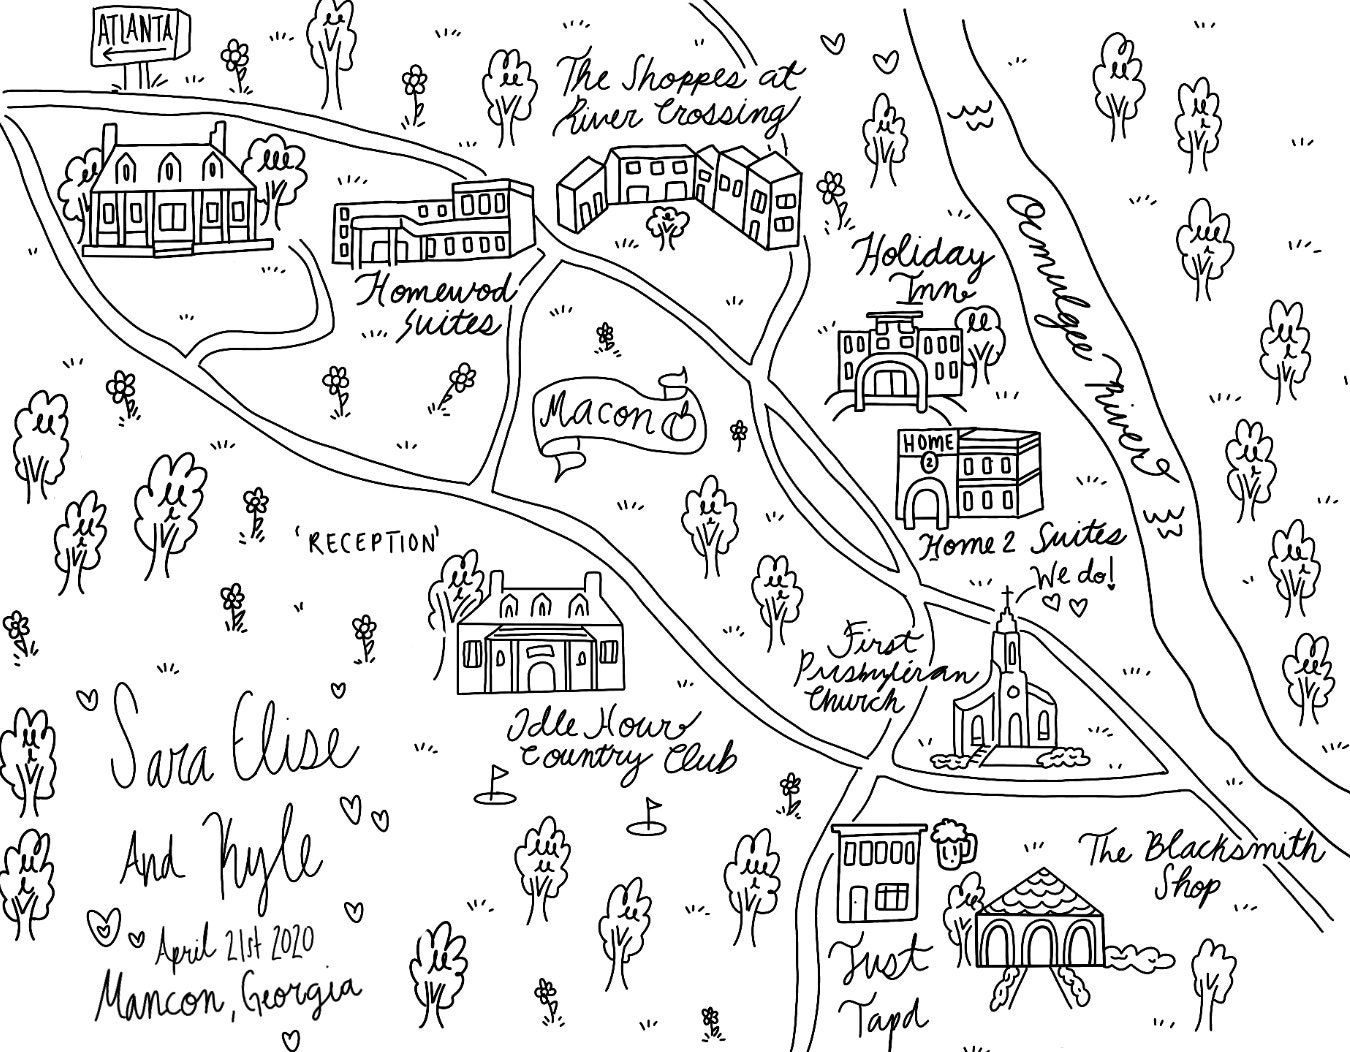 ATLANTA
The Shoppes at
River Crossing
Homewod
Suites
Holiday
Inn
Ocmulge River
Macon
HOME
2
Home 2 Suites
We do!
'RECEPTION'
First
Presbyterian
Church
Idle Hour
Country Club
Sara Elise
And Kyle
April 21st 2020
Mancon, Georgia
The Blacksmith
Shop
Just
Tapd